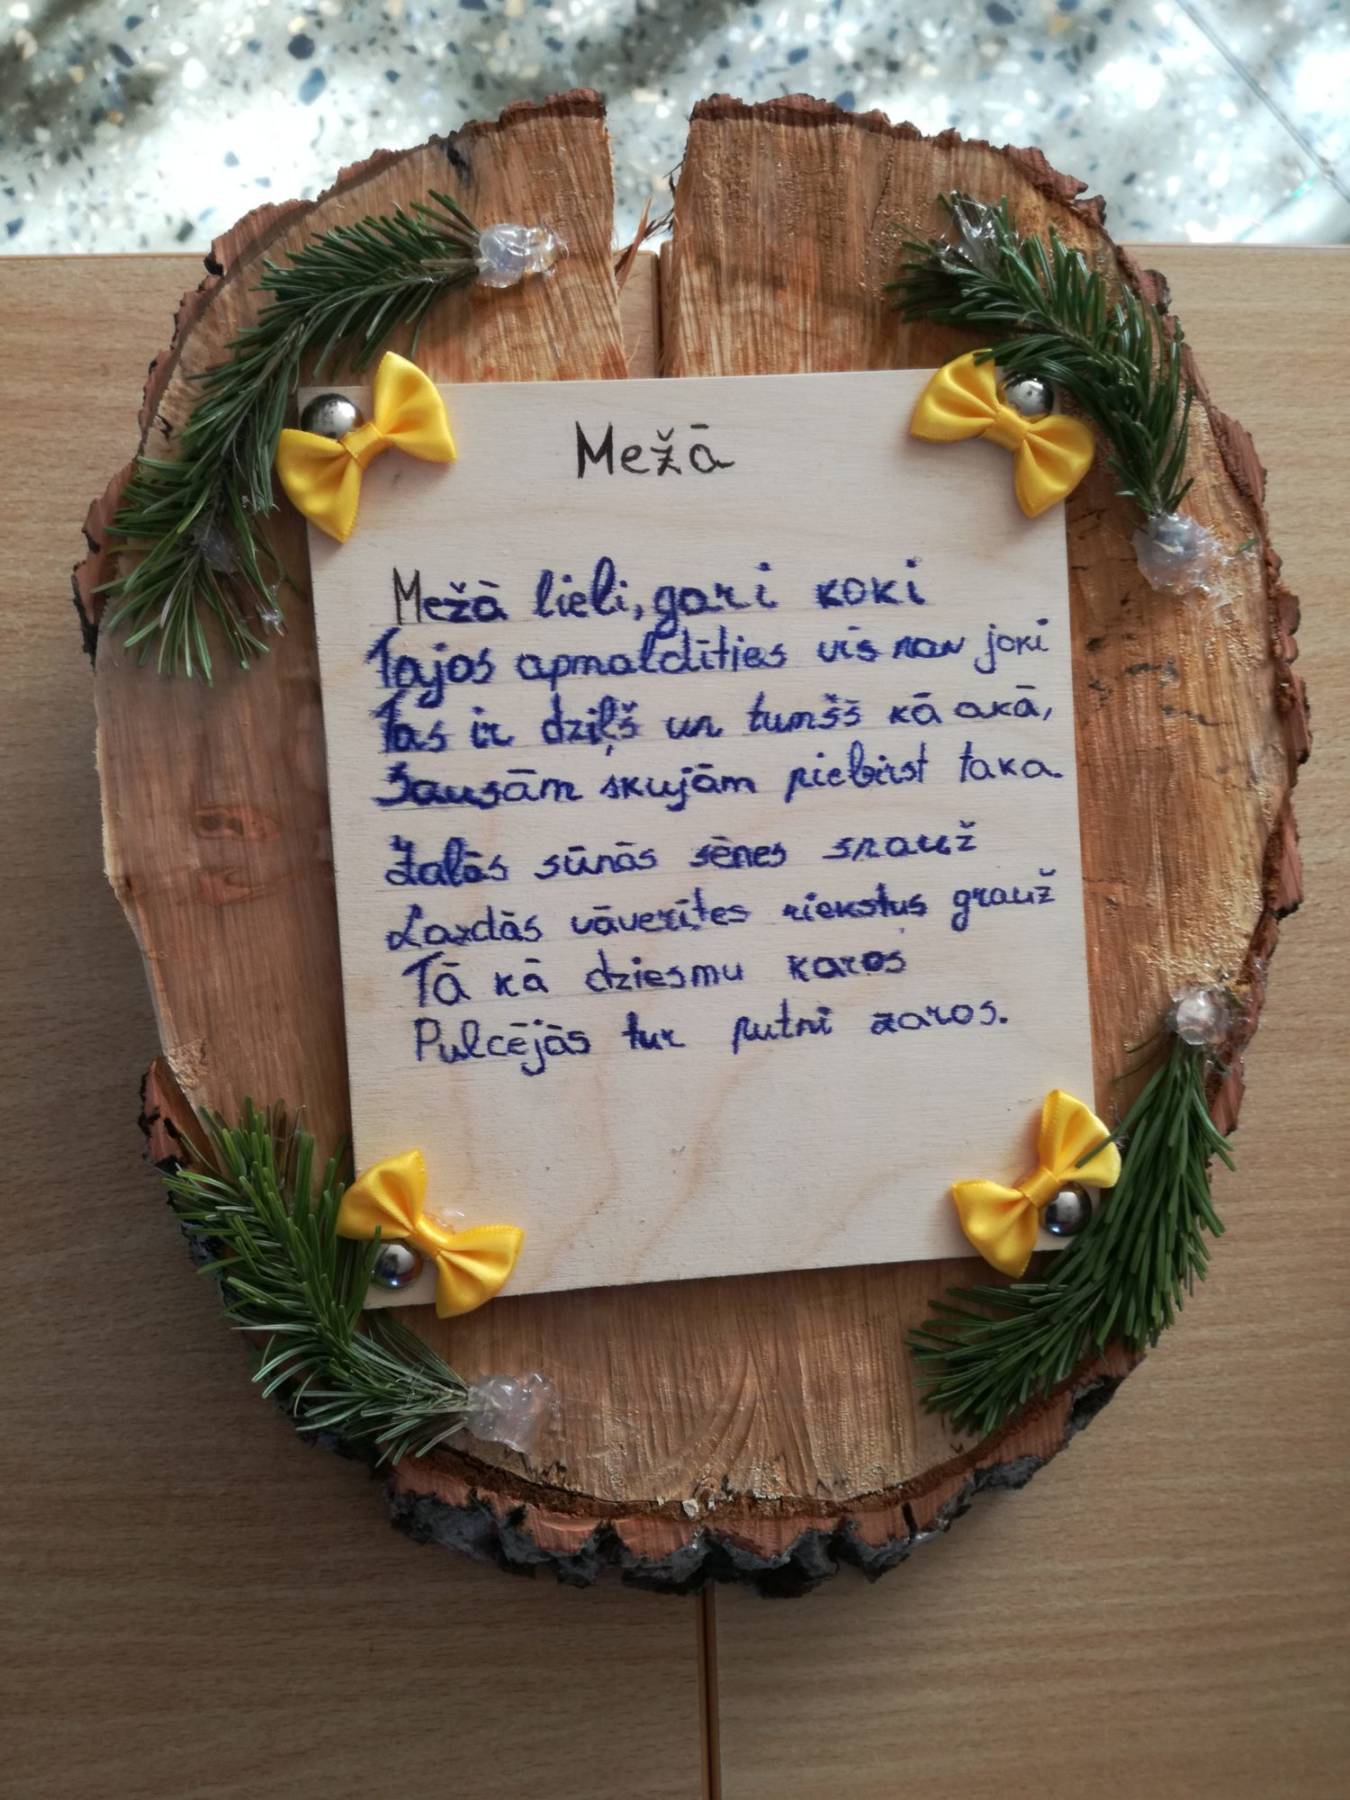 Mežā
Mežā lieli, gari koki
Tajos apmaldīties vis nav joki
Tas ir dziļš un tumšš kā akā,
Sausām skujām piebirst taka.
Zaļās sūnās sēnes snauž
Lazdās vāverītes riekstus grauž
Tā kā dziesmu karos
Pulcējās tur putni zaros.